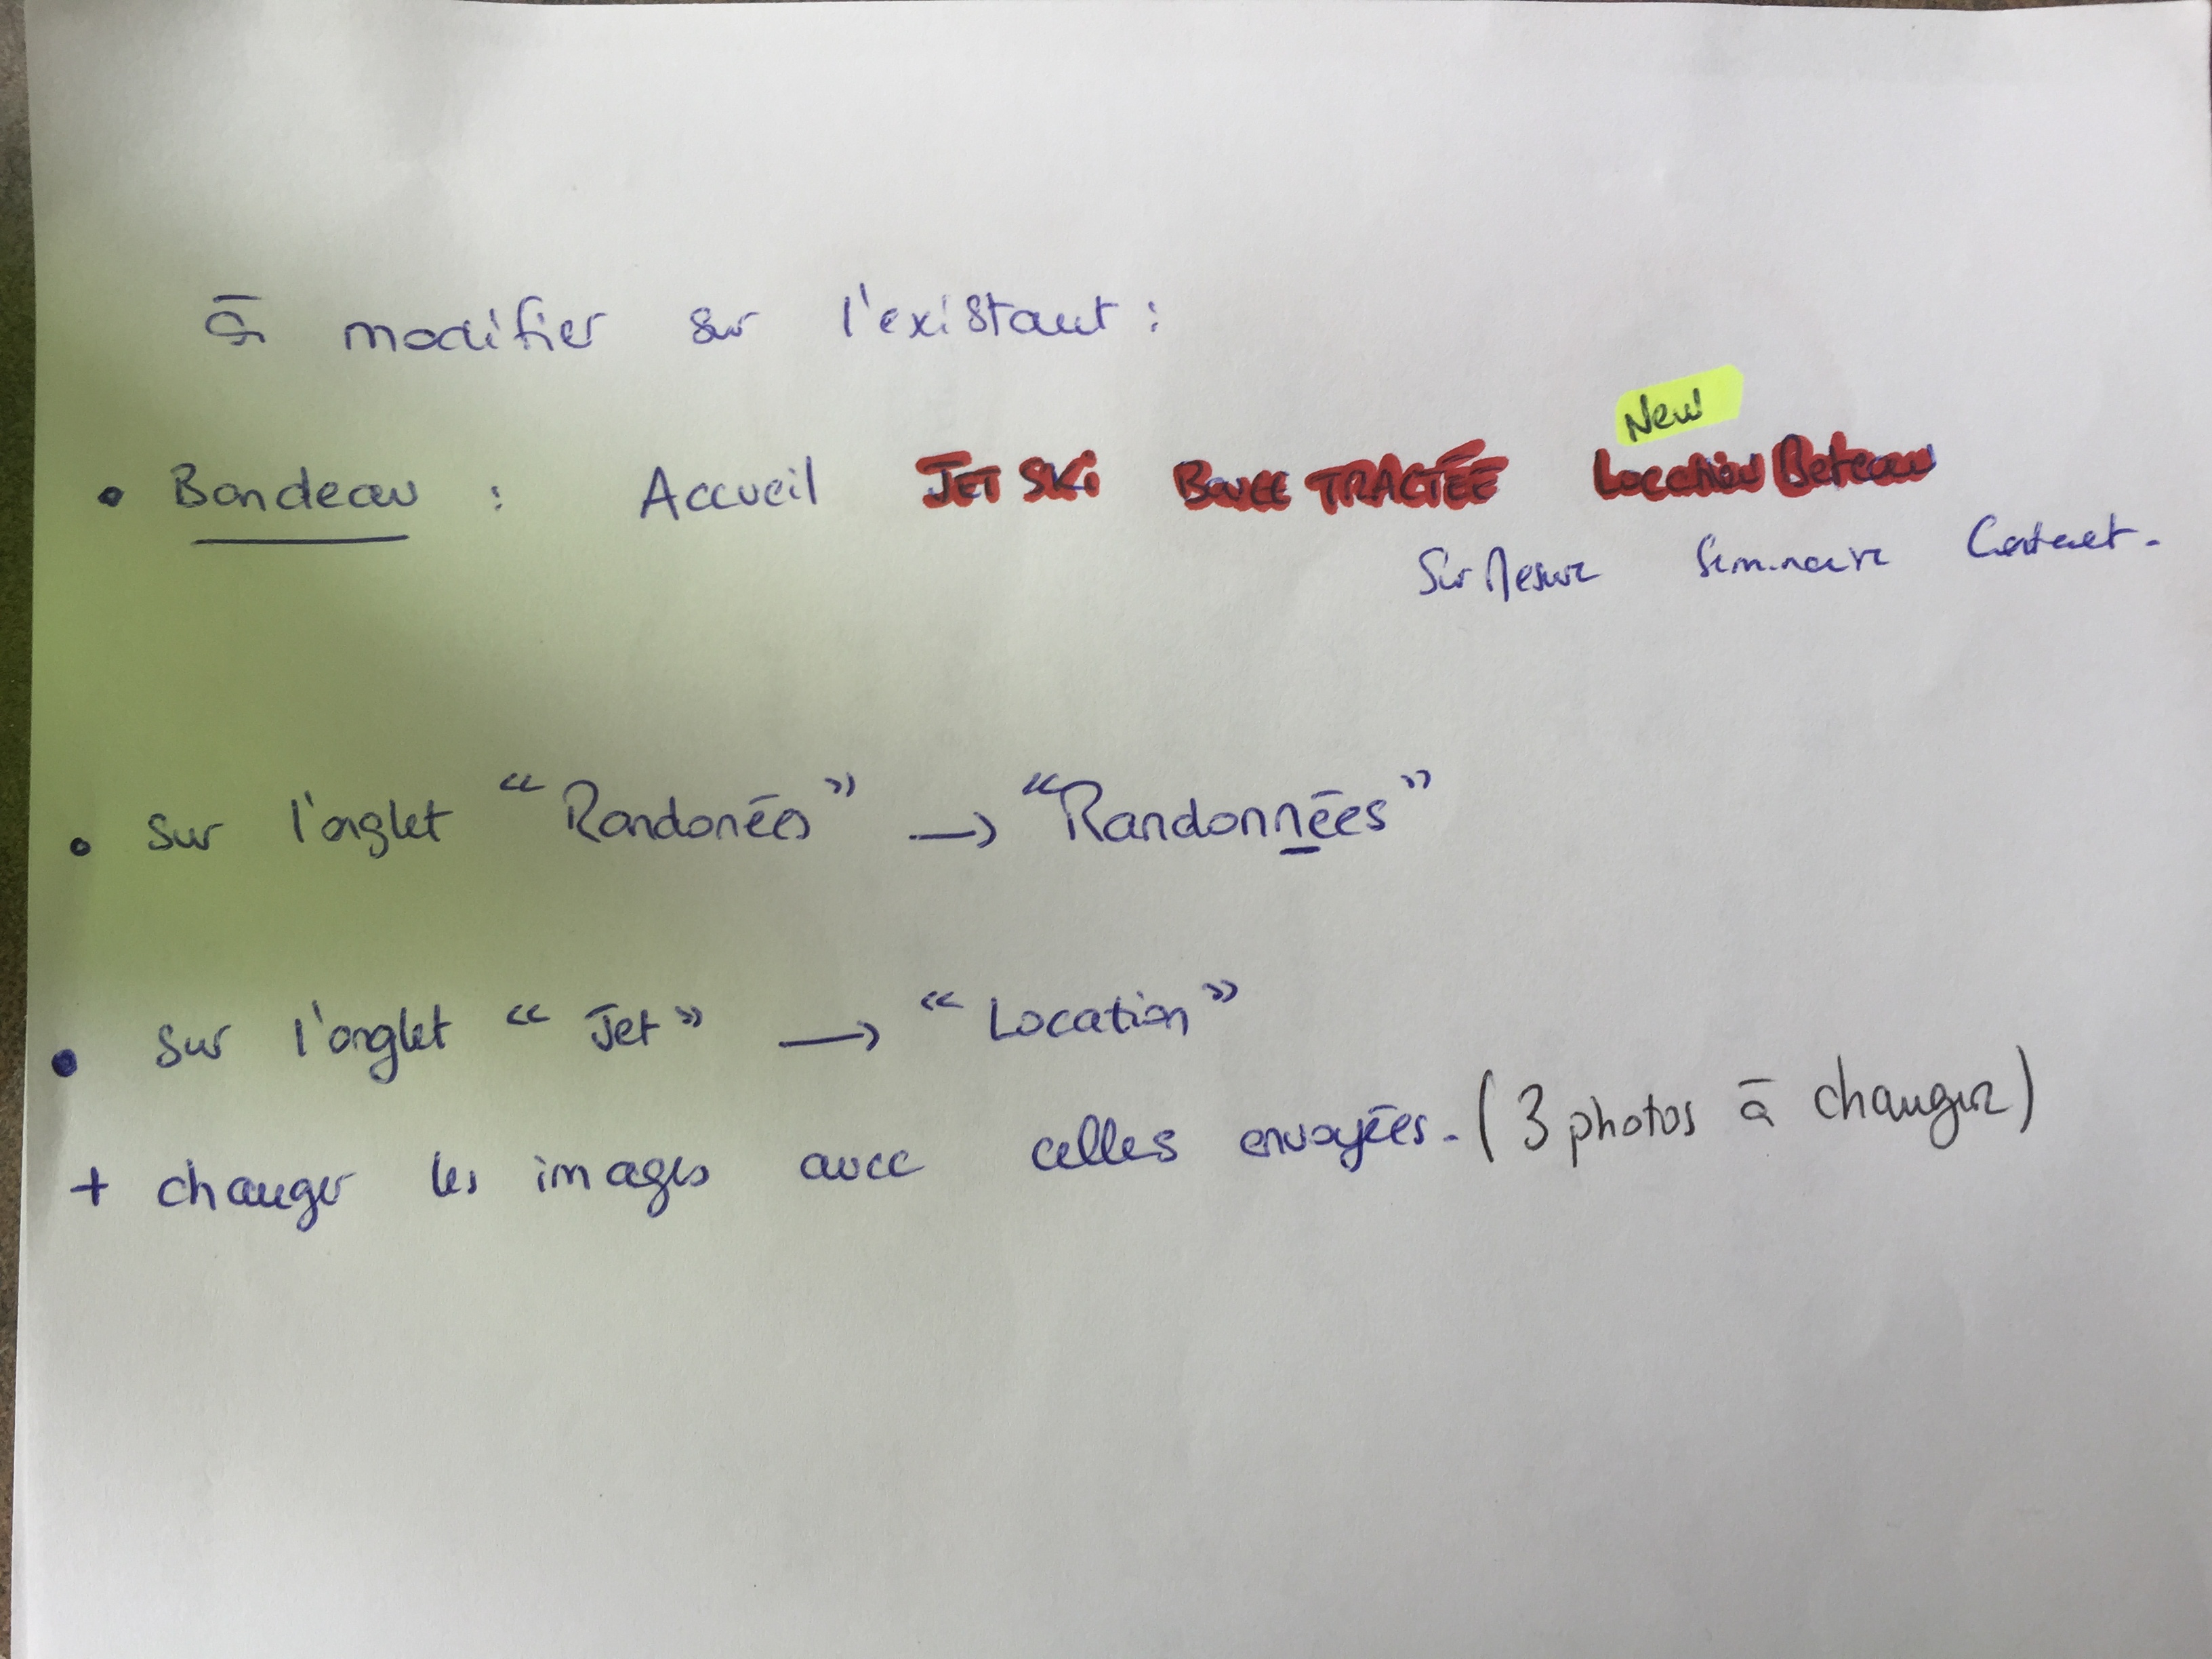 à modifier sur l'existant :
New
• Bandeau : Accueil JET SKi Bouée TRACTÉE Location Bateau
Sur Mesure Seminaire Contact.
• Sur l'onglet "Randonées" → "Randonnées"
• Sur l'onglet "Jet" → "Location"
+ changer les images avec celles envoyées. (3 photos à changer)